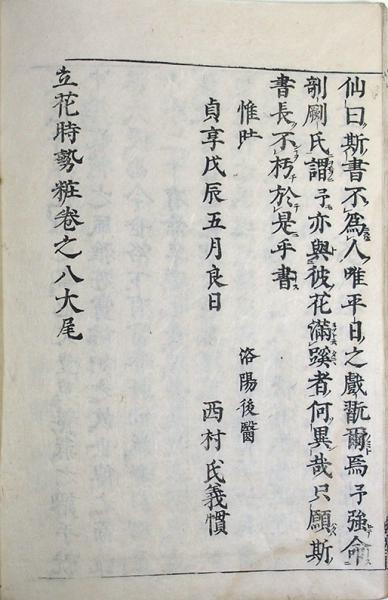 仙曰斯書不為人唯平日之戲翫爾焉予強命
剞劂氏謂予亦與彼花滿蹊者何異哉只願斯
書長不朽於是乎書
惟旹
貞享戊辰五月良日
洛陽後醫
西村氏義慣
立花時勢粧卷之八大尾